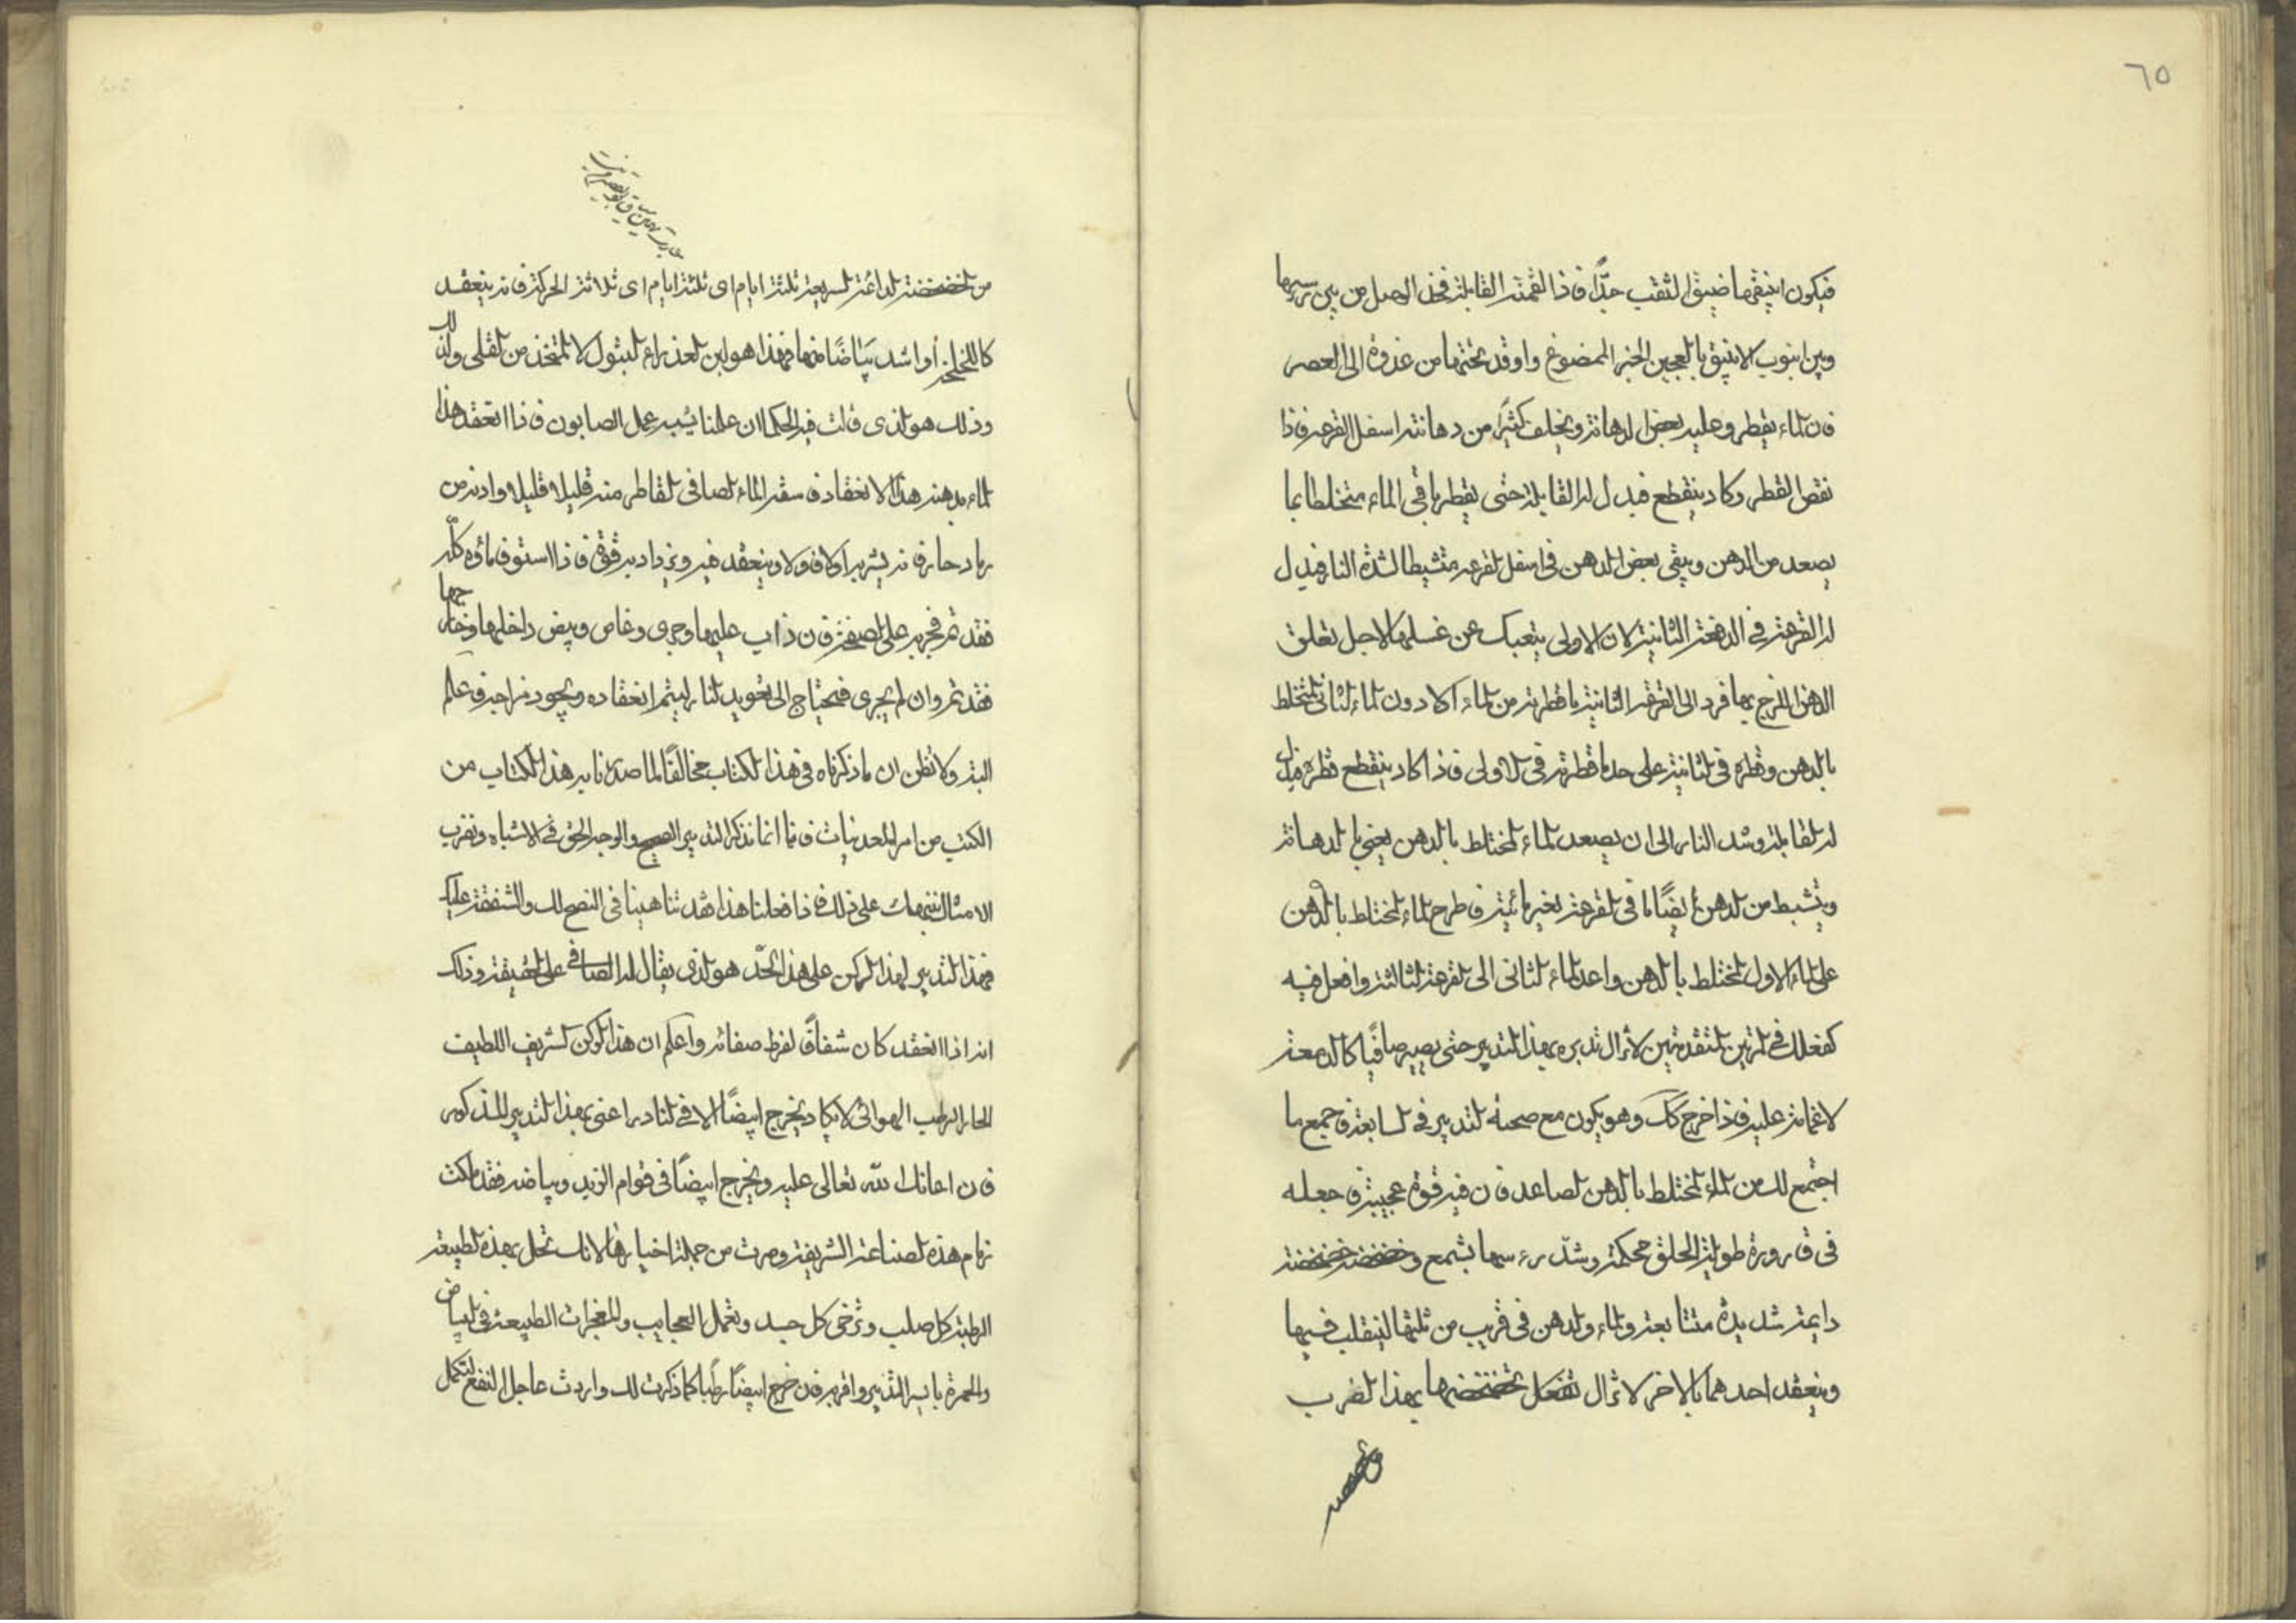 ٦٥
فيكون انبيقها ضيق الثقب جدًّا فاذا لقمته القابلة فخذ الوصل من بين
وبين انبوب الانبيق بالعجين الخبز الممضوغ واوقد تحتها من غدوة الى العصر
فان الماء يقطر وعليه بعض الدهانة ويخلف كثيرًا من دهانته اسفل القرعه فاذا
نقص القطر وكاد ينقطع فبدل له القابلة حتى يقطر باقى الماء متخلطا بما
يصعد من الدهن ويبقى بعض الدهن فى اسفل القرعه متشيطا لشدة النار فبدل
له القرعة فى الدفعة الثانية لان الاولى يتعبك عن غسلها لاجل تعلق
الدهن اللزج بها فرد الى القرعة الثانية ما قطرته من الماء اولا دون الماء الثانى المتخلط
بالدهن وقطره فى الثانية على حد ما قطرته فى الاولى فاذا كاد ينقطع قطره فبدل
له القابلة وشد النار الى ان يصعد الماء المختلط بالدهن يعنى بالدهانة
ويتشيط من الدهن ايضًا ما فى القرعة بغير مائية فاطرح الماء المختلط بالدهن
على الماء الاول المختلط بالدهن واعد الماء الثانى الى القرعة الثالثة وافعل فيه
كفعلك فى المرتين المتقدمتين لا تزال تدبره بهذا التدبير حتى يصير صافيًا كالدمعة
لا غمامة عليه فاذا خرج كك وهو يكون مع صحة التدبير فى السابعة فاجمع ما
اجتمع لك من الماء المختلط بالدهن الصاعد فان فيه قوة عجيبة فاجعله
فى قارورة طويلة الحلق محكمة وشدّ رءسها بشمع وخضخضه خضخضة
دايمة شديدة متتابعة والماء والدهن فى قريب من ثلثها لينقلب فيها
وينعقد احدهما بالاخر لا تزال تفعل بخضخضها بهذا الضرب
من الخضخضة الدائمة السريعة ثلثة ايام اى ثلثة ايام اى ثلاثة الحركة فانه ينعقد
او اشد بياضًا منها فهذا هو لبن العذراء البتول لا المتخذ من القلى
وذلك هو الذى قالت فيه الحكما ان علمنا يشبه عمل الصابون فاذا انعقد هذا
الماء بدهنه هذا الانعقاد فاسقه الماء الصافى القاطر منه قليلا قليلا وادنه من
رماد حار فانه يشربه اولا فاولا وينعقد فيه ويزداد به قوة فاذا استوفى ماؤه كلّه
فقد تم فجربه على الصفيحة فان ذاب عليها وجرى وغاص وبيض داخلها وخارجها
فقد تم وان لم يجرى فتحتاج الى تعويد النار ليتم انعقاده ويجود مزاجه فاعلم
البتة ولا تظن ان ما ذكرناه فى هذا الكتاب مخالفًا لما صدرنا به هذا الكتاب من
الكتب من امر المعدنيات فانا انما نذكر التدبير الصحيح والوجه الحق فى الاشياه ونضرب
الامثال على ذلك فاذا فعلنا هذا فقد تناهينا فى النصح لك والشفقة عليك
فهذا التدبير لهذا الركن على هذا الحدّ هو الذى يقال له الصافى على الحقيقة وذلك
انه اذا انعقد كان شفافًا لفرط صفائه واعلم ان هذا الركن الشريف اللطيف
الحار الرطب الهوائى لا يكاد يخرج ايضًا الا فى النادر اعنى بهذا التدبير المذكور
فان اعانك الله تعالى عليه ويخرج ايضًا فى قوام الزبد وبياضه فقد ملكت
زمام هذه الصناعة الشريفة وصرت من جملة اخيارها لانك تحل بهذه الطبيعة
الرطبة كل صلب وترخى كل جسد وتعمل العجايب والمعجزات الطبيعة فى البياض
والحمرة بايسر التدبير واقربه فان خرج ايضًا رطبًا كما ذكرت لك واردت عاجل النفع